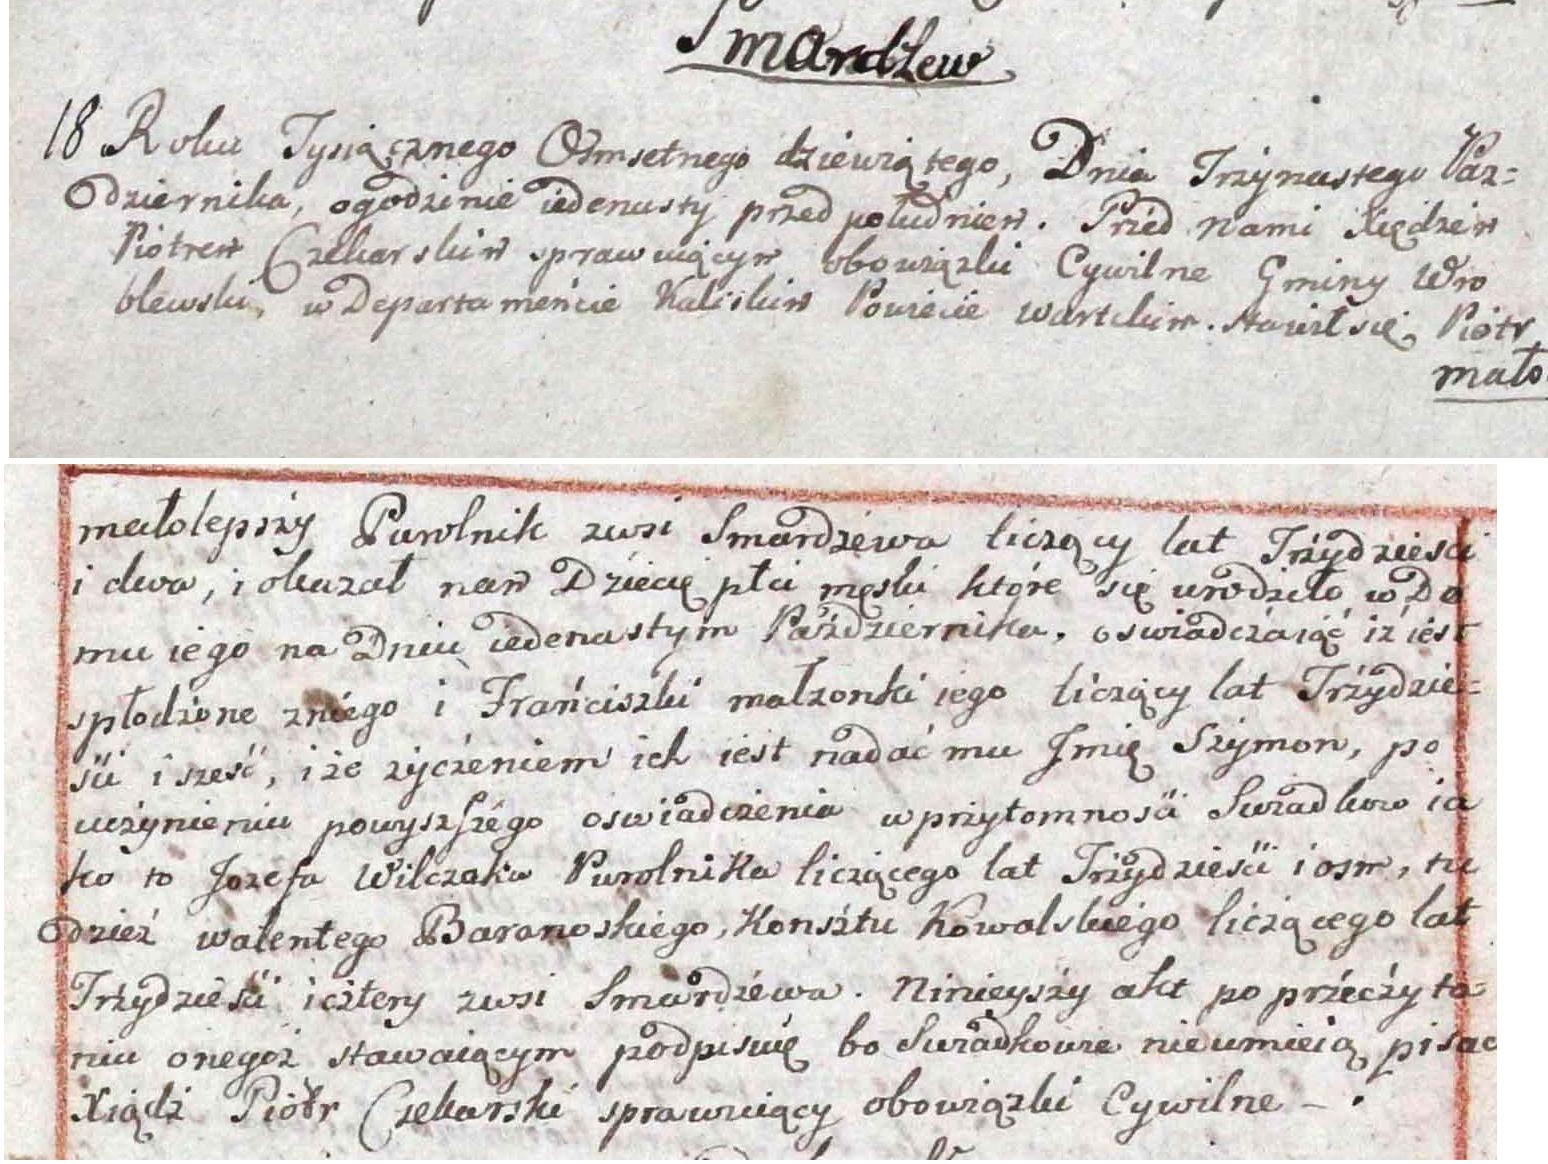 Smardzew
18 Roku Tysiącznego Osmsetnego dziewiątego, Dnia Trzynastego Paz=
dziernika, ogodzinie iedenasty przed południem. Przed Nami Xiędzem
Piotrem Czekarskim sprawuiącym obowiązki Cywilne Gminy Wro
blewski, w Departamencie Kaliskim Powiecie wartskim. stawił się Piotr
mało
małolepszy Purolnik zwsi Smardzewa liczący lat Trzydziesci
i dwa, i okazał nam Dziecię płci męski które się urodziło w Do
mu iego na Dniu iedenastym Października, oswiadczaiąć iż iest
spłodzone zniego i Franciszki małzonki iego liczący lat Trzydzie=
sci i szesć, i że życzeniem ich iest nadać mu Jmię Szymon, po
uczynieniu powyszszego oswiadczenia wprzytomnosci Swiadkow ia
ko to Jozefa Wilczaka Purolnika liczącego lat Trzydziesci i osm, tu
dzież walentego Baranoskiego, Konsztu Kowalskiego liczącego lat
Trzydziesci i cztery zwsi Smardzewa. Ninieyszy akt po przeczyta
niu onegoż stawaiącym podpisuię bo Swiadkowie nieumieią pisac
Xiądz Piotr Czekarski sprawuiący obowiązki Cywilne - .